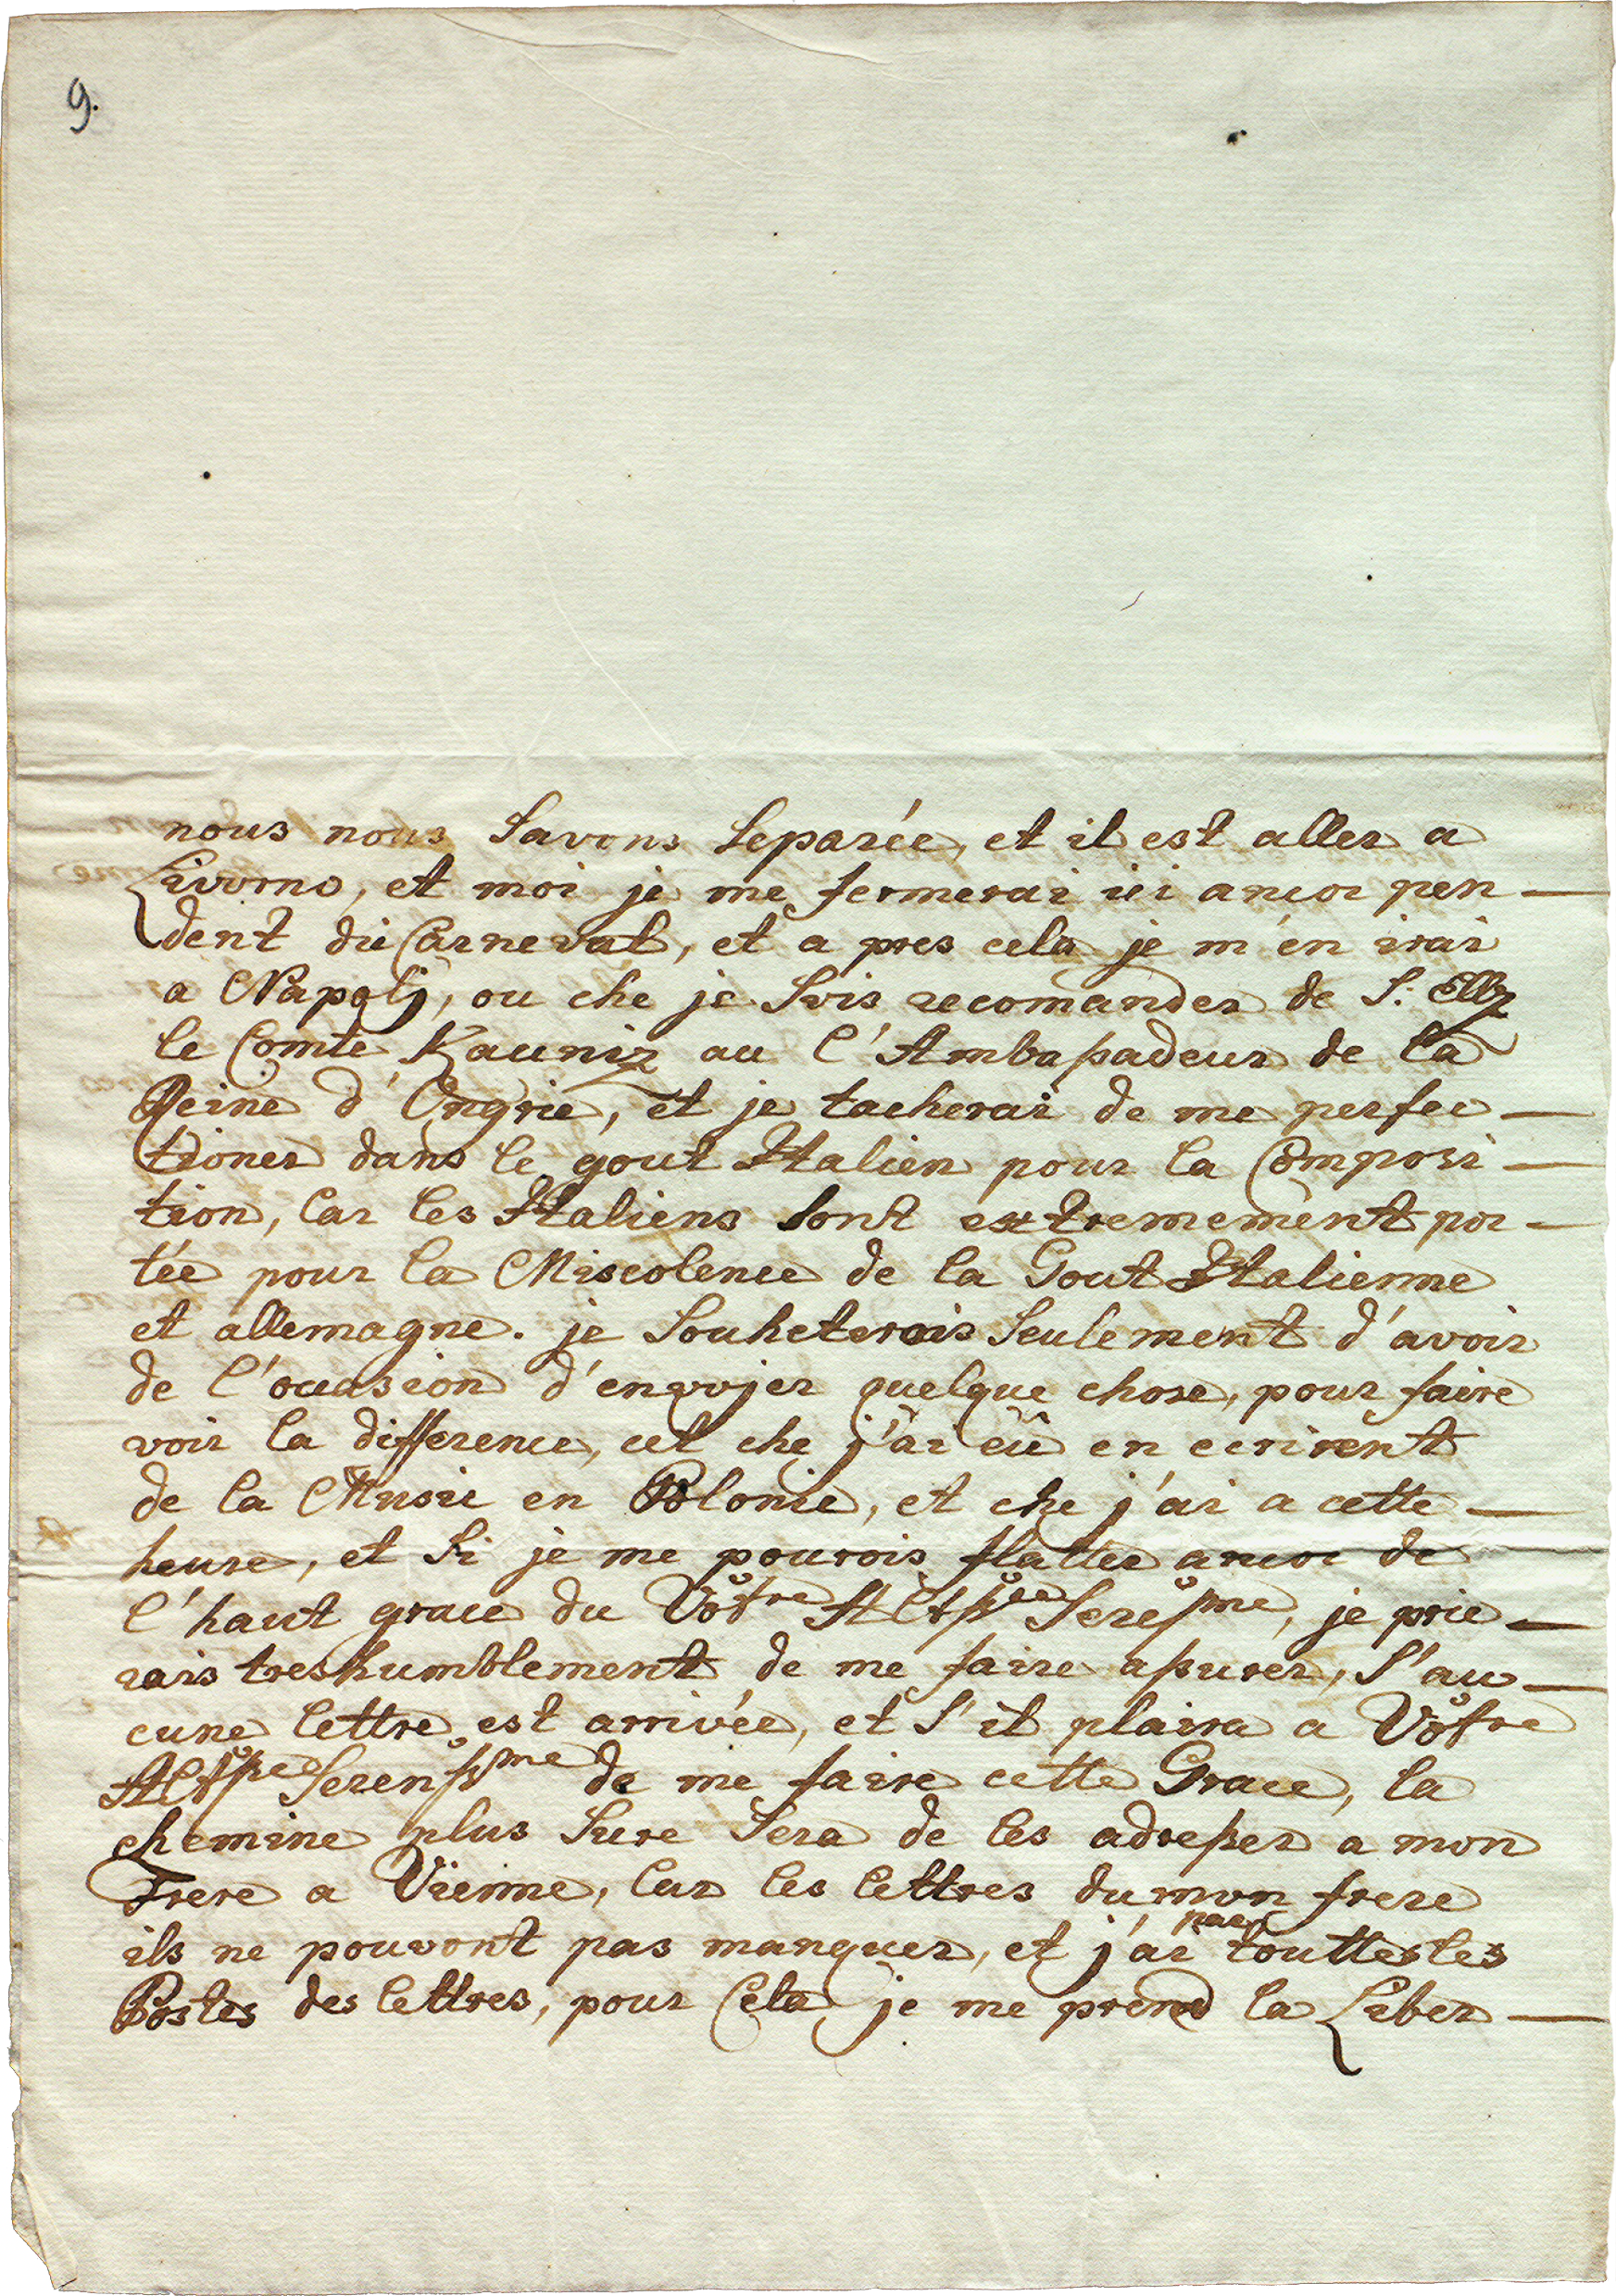 9.
nous nous Savons Separée, et il est aller a
Livorno, et moi je me fermerai ici ancor pen-
dent du Carneval, et a pres cela je m'en irai
a Napolj, ou che je Suis recomander de S: Ellz
le Comte Kauniz au l'Ambaßadeur de la
Reine d'Ongrie, et je tacherai de me perfec-
tioner dans le gout Italien pour la Composi-
tion, Car les Italiens Sont extremement por-
tée pour la Miscolence de la Gout Italienne
et allemagne. je Souheterois Seulement d'avoir
de l'occasion d'envojer quelque chose, pour faire
voir la difference, cet che j'ai eû en ecrirent
de la Music en Polonie, et che j'ai a cette
heure, et Si je me pourois flattee ancor de
l'haut grace du Vôtre Altßee Sereßme, je prie-
rais treshumblement de me faire aßurer, S'au-
cune lettre est arrivée, et S'il plaira a Vôtre
Altßee Serenßme de me faire cette Grace, la
chemine plus Sure Sera de les adreßer a mon
Frere a Vienne, Car les lettres du mon frere
ils ne pouvont pas manquer, et j'ai par touttes les
Postes des lettres, pour Cela je me prend la Liber-